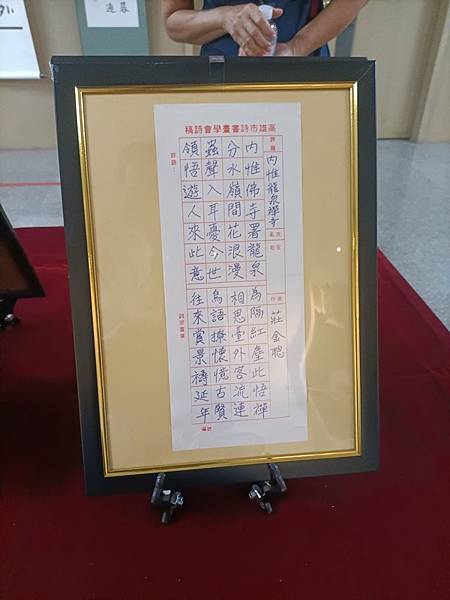 高雄市詩書畫學會詩稿
詩題 內惟龍泉禪寺
名次
作者 莊金聰
內惟佛寺署龍泉 為隔紅塵此悟禪
分水嶺間花浪漫 相思臺外客流連
蟲聲入耳憂今世 鳥語撩懷憶古賢
領悟遊人來此意 往來賞景禱延年
評語：